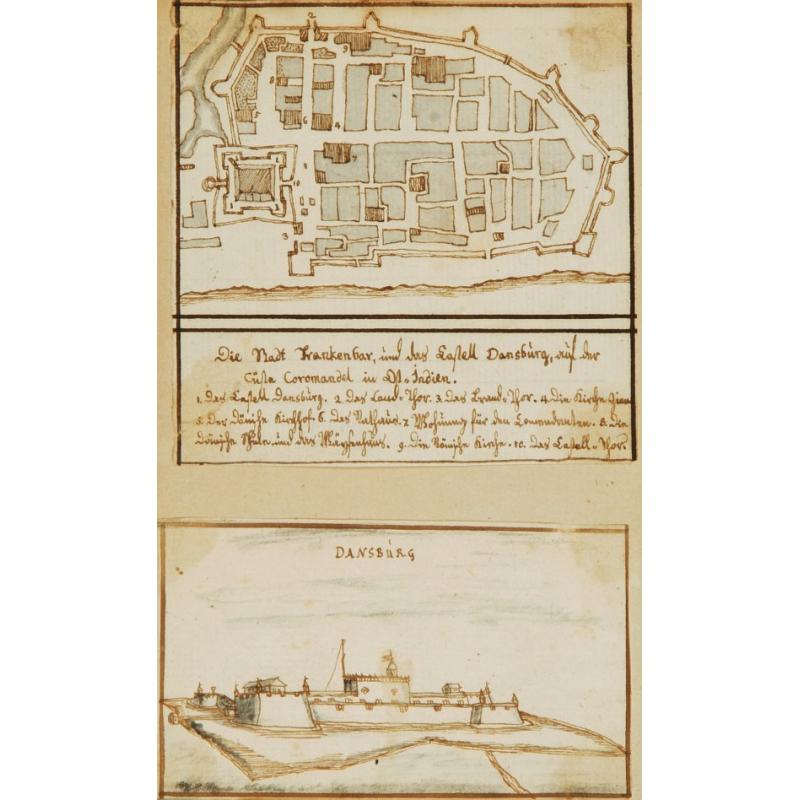 2
9
8
5
6
4
7
10
3
Die Stadt Trankenbar, und das Castell Dansburg, auf der
Cüste Coromandel in Ost-Indien.
1. das Castell Dansburg. 2. das Land-Thor. 3. das Brand-Thor. 4. die Kirche Zion
5. Der dänische Kirchhof 6. das Rathaus. 7 Wohnung für den Commendanten. 8. die
dänische Schule und das Wäysenhaus. 9. die Römische Kirche. 10. das Castell-Thor.
DANSBURG